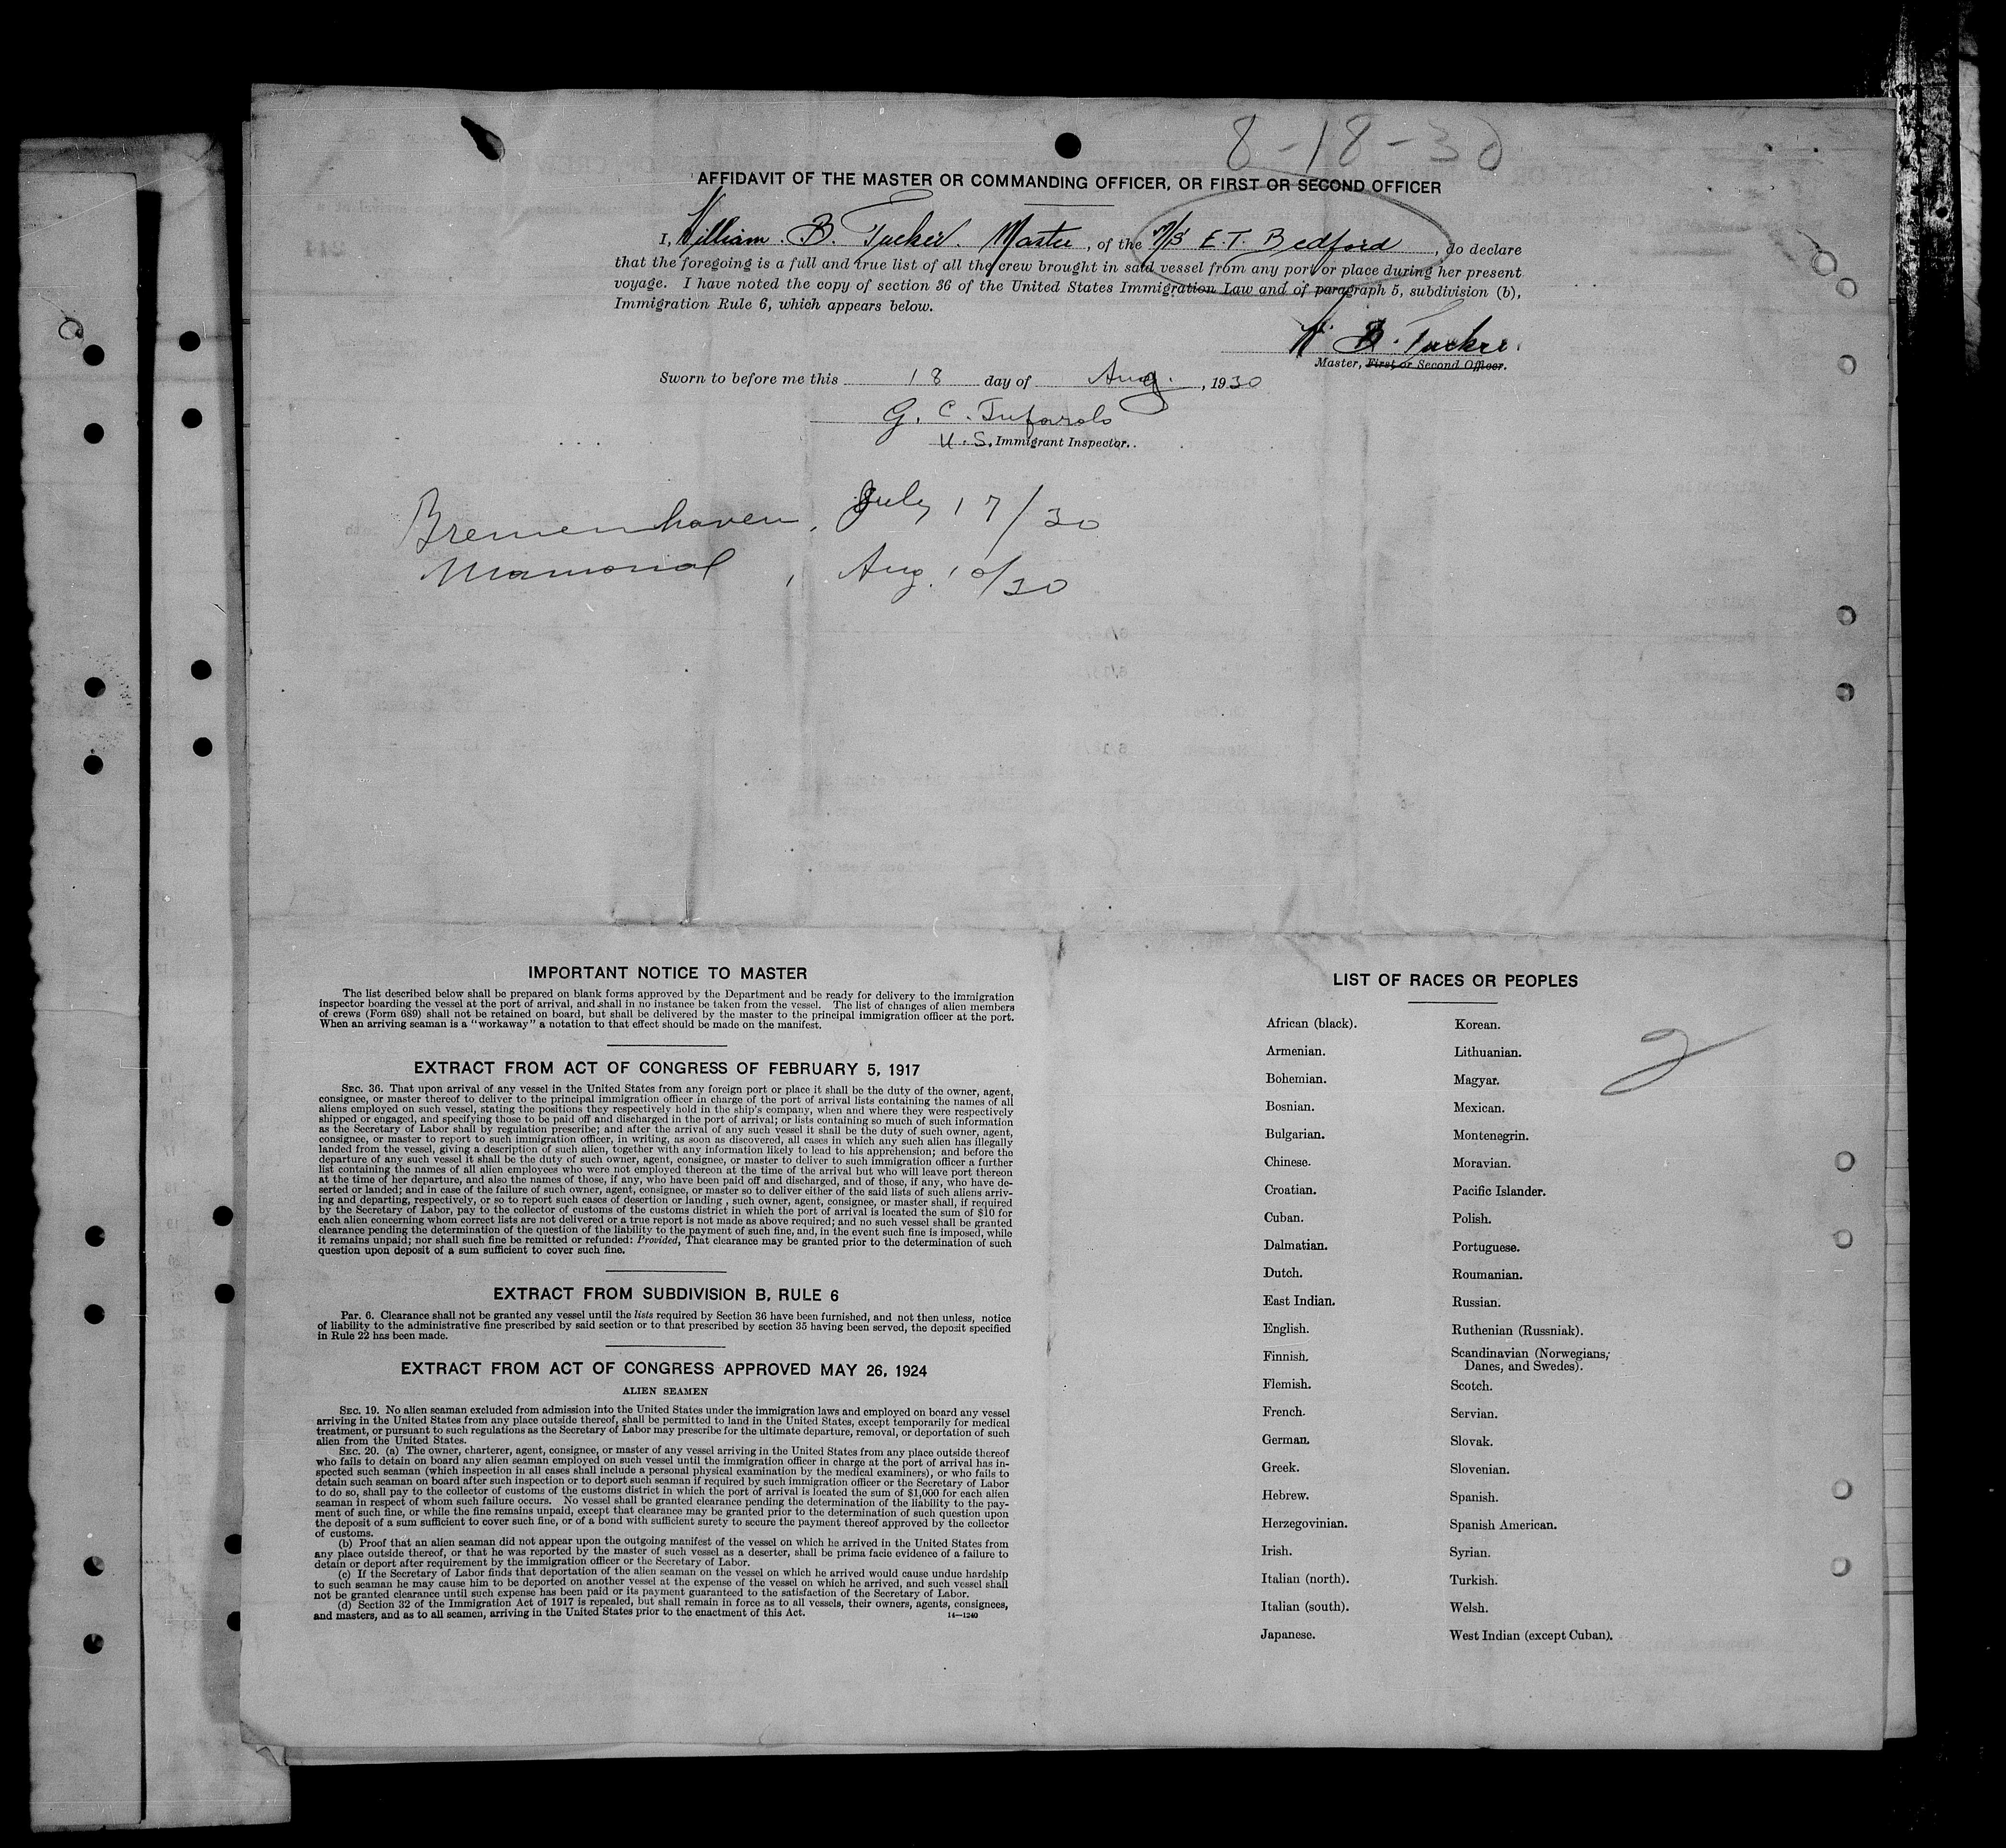 8-18-30
AFFIDAVIT OF THE MASTER OR COMMANDING OFFICER, OR FIRST OR SECOND OFFICER
I, William. B. Tucker. Master, of the M/S E.T. Bedford, do declare
that the foregoing is a full and true list of all the crew brought in said vessel from any port or place during her present
voyage. I have noted the copy of section 36 of the United States Immigration Law and of paragraph 5, subdivision (b),
Immigration Rule 6, which appears below.
W. B. Tucker.
Master, First or Second Officer.
Sworn to before me this 18 day of Aug., 1930
G. C.
U. S. Immigrant Inspector.
Bremenhaven, July 17/30
Mamonal, Aug. 10/30
IMPORTANT NOTICE TO MASTER
The list described below shall be prepared on blank forms approved by the Department and be ready for delivery to the immigration
inspector boarding the vessel at the port of arrival, and shall in no instance be taken from the vessel. The list of changes of alien members
of crews (Form 689) shall not be retained on board, but shall be delivered by the master to the principal immigration officer at the port.
When an arriving seaman is a "workaway" a notation to that effect should be made on the manifest.
EXTRACT FROM ACT OF CONGRESS OF FEBRUARY 5, 1917
SEC. 36. That upon arrival of any vessel in the United States from any foreign port or place it shall be the duty of the owner, agent,
consignee, or master thereof to deliver to the principal immigration officer in charge of the port of arrival lists containing the names of all
aliens employed on such vessel, stating the positions they respectively hold in the ship's company, when and where they were respectively
shipped or engaged, and specifying those to be paid off and discharged in the port of arrival; or lists containing so much of such information
as the Secretary of Labor shall by regulation prescribe; and after the arrival of any such vessel it shall be the duty of such owner, agent,
consignee, or master to report to such immigration officer, in writing, as soon as discovered, all cases in which any such alien has illegally
landed from the vessel, giving a description of such alien, together with any information likely to lead to his apprehension; and before the
departure of any such vessel it shall be the duty of such owner, agent, consignee, or master to deliver to such immigration officer a further
list containing the names of all alien employees who were not employed thereon at the time of the arrival but who will leave port thereon
at the time of her departure, and also the names of those, if any, who have been paid off and discharged, and of those, if any, who have de-
serted or landed; and in case of the failure of such owner, agent, consignee, or master so to deliver either of the said lists of such aliens arriv-
ing and departing, respectively, or so to report such cases of desertion or landing , such owner, agent, consignee, or master shall, if required
by the Secretary of Labor, pay to the collector of customs of the customs district in which the port of arrival is located the sum of $10 for
each alien concerning whom correct lists are not delivered or a true report is not made as above required; and no such vessel shall be granted
clearance pending the determination of the question of the liability to the payment of such fine, and, in the event such fine is imposed, while
it remains unpaid; nor shall such fine be remitted or refunded: Provided, That clearance may be granted prior to the determination of such
question upon deposit of a sum sufficient to cover such fine.
EXTRACT FROM SUBDIVISION B, RULE 6
Par. 6. Clearance shall not be granted any vessel until the lists required by Section 36 have been furnished, and not then unless, notice
of liability to the administrative fine prescribed by said section or to that prescribed by section 35 having been served, the deposit specified
in Rule 22 has been made.
EXTRACT FROM ACT OF CONGRESS APPROVED MAY 26, 1924
ALIEN SEAMEN
SEC. 19. No alien seaman excluded from admission into the United States under the immigration laws and employed on board any vessel
arriving in the United States from any place outside thereof, shall be permitted to land in the United States, except temporarily for medical
treatment, or pursuant to such regulations as the Secretary of Labor may prescribe for the ultimate departure, removal, or deportation of such
alien from the United States.
SEC. 20. (a) The owner, charterer, agent, consignee, or master of any vessel arriving in the United States from any place outside thereof
who fails to detain on board any alien seaman employed on such vessel until the immigration officer in charge at the port of arrival has in-
spected such seaman (which inspection in all cases shall include a personal physical examination by the medical examiners), or who fails to
detain such seaman on board after such inspection or to deport such seaman if required by such immigration officer or the Secretary of Labor
to do so, shall pay to the collector of customs of the customs district in which the port of arrival is located the sum of $1,000 for each alien
seaman in respect of whom such failure occurs. No vessel shall be granted clearance pending the determination of the liability to the pay-
ment of such fine, or while the fine remains unpaid, except that clearance may be granted prior to the determination of such question upon
the deposit of a sum sufficient to cover such fine, or of a bond with sufficient surety to secure the payment thereof approved by the collector
of customs.
(b) Proof that an alien seaman did not appear upon the outgoing manifest of the vessel on which he arrived in the United States from
any place outside thereof, or that he was reported by the master of such vessel as a deserter, shall be prima facie evidence of a failure to
detain or deport after requirement by the immigration officer or the Secretary of Labor.
(c) If the Secretary of Labor finds that deportation of the alien seaman on the vessel on which he arrived would cause undue hardship
to such seaman he may cause him to be deported on another vessel at the expense of the vessel on which he arrived, and such vessel shall
not be granted clearance until such expense has been paid or its payment guaranteed to the satisfaction of the Secretary of Labor.
(d) Section 32 of the Immigration Act of 1917 is repealed, but shall remain in force as to all vessels, their owners, agents, consignees,
and masters, and as to all seamen, arriving in the United States prior to the enactment of this Act.
14—1240
LIST OF RACES OR PEOPLES
African (black).
Armenian.
Bohemian.
Bosnian.
Bulgarian.
Chinese.
Croatian.
Cuban.
Dalmatian.
Dutch.
East Indian.
English.
Finnish.
Flemish.
French.
German.
Greek.
Hebrew.
Herzegovinian.
Irish.
Italian (north).
Italian (south).
Japanese.
Korean.
Lithuanian.
Magyar.
Mexican.
Montenegrin.
Moravian.
Pacific Islander.
Polish.
Portuguese.
Roumanian.
Russian.
Ruthenian (Russniak).
Scandinavian (Norwegians,
Danes, and Swedes).
Scotch.
Servian.
Slovak.
Slovenian.
Spanish.
Spanish American.
Syrian.
Turkish.
Welsh.
West Indian (except Cuban).